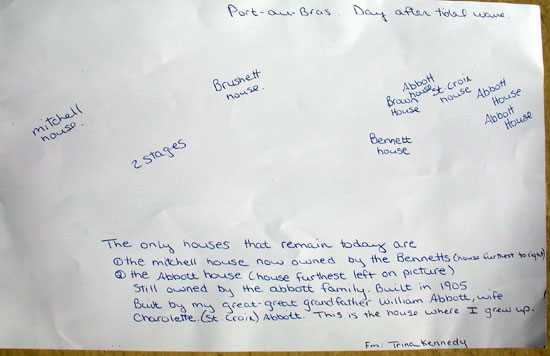 Port-au-Bras. Day after tidal wave.
Brushett
house.
Abbott
house
St. Croix
house
Brown
House
Abbott
House
Abbott
House
mitchell
house.
2 stages
Bennett
house
The only houses that remain today are
① the mitchell house now owned by the Bennetts (house furthest to right)
② the Abbott house (house furthest left on picture)
Still owned by the abbott family. Built in 1905
Built by my great-great grandfather William Abbott, wife
Charolette (St. Croix) Abbott. This is the house where I grew up.
Fm: Trina Kennedy